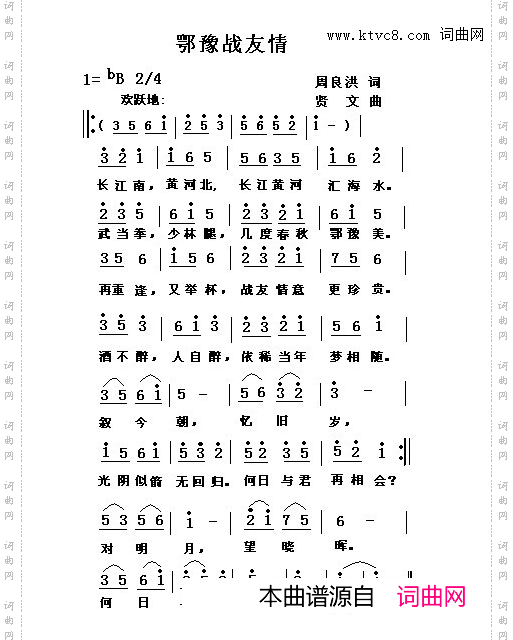 鄂豫战友情
www.ktvc8.com 词曲网
1= ᵇB 2/4
周良洪 词
欢跃地:
贤 文 曲
( 3 5 6 i | 2̇ 5 3̇ | 5 6 5̇ 2̇ | i - )
3̇ 2̇ i | i 6 5 | 5 6 3 5 | i 6 2̇ |
长江南，黄河北, 长江黄河 汇海水。
2̇ 3̇ 5̇ | 6 i 5 | 2̇ 3̇ 2̇ i | 6 i 5 |
武当拳，少林腿，几度春秋 鄂豫美。
3 5 6 | i 5 6 | 2̇ 3̇ 2̇ i | 7 5 6 |
再重逢，又举杯，战友情意 更珍贵。
3̇ 5 3̇ | 6 i 3̇ | 2̇ 3̇ 2̇ i | 5 2̇ i |
酒不醉，人自醉，依稀当年 梦相随。
3 5 6 i | 5 - | 5 6 3̇ 2̇ | 3̇ - |
叙今朝，忆旧岁，
i 5 6 i | 5̇ 3̇ 2̇ | 5 2̇ 3̇ 5 | 5̇ 2̇ i :||
光阴似箭 无回归。何日与君 再相会?
5 3̇ 5 6 | i - | 2̇ i 7 5 | 6 - |
对明月，望晓晖。
3 5 6 i
何日
本曲谱源自 词曲网